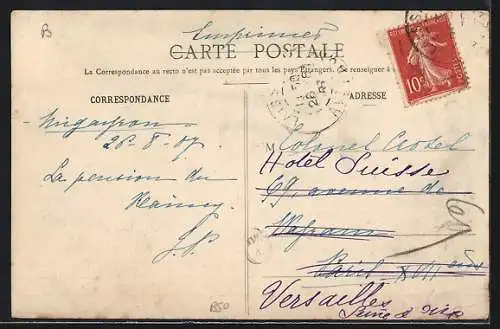 B
Imprimés
CARTE POSTALE
La Correspondance au recto n'est pas acceptée par tous les pays Étrangers. (Se renseigner à
CORRESPONDANCE
ADRESSE
26-8-07
La pension du
Rainey
J.P.
M Colonel Crotel
Hotel Suisse
69, avenue de
Wagram
Paris XVII
Versailles
Seine & Oise
10c
B50